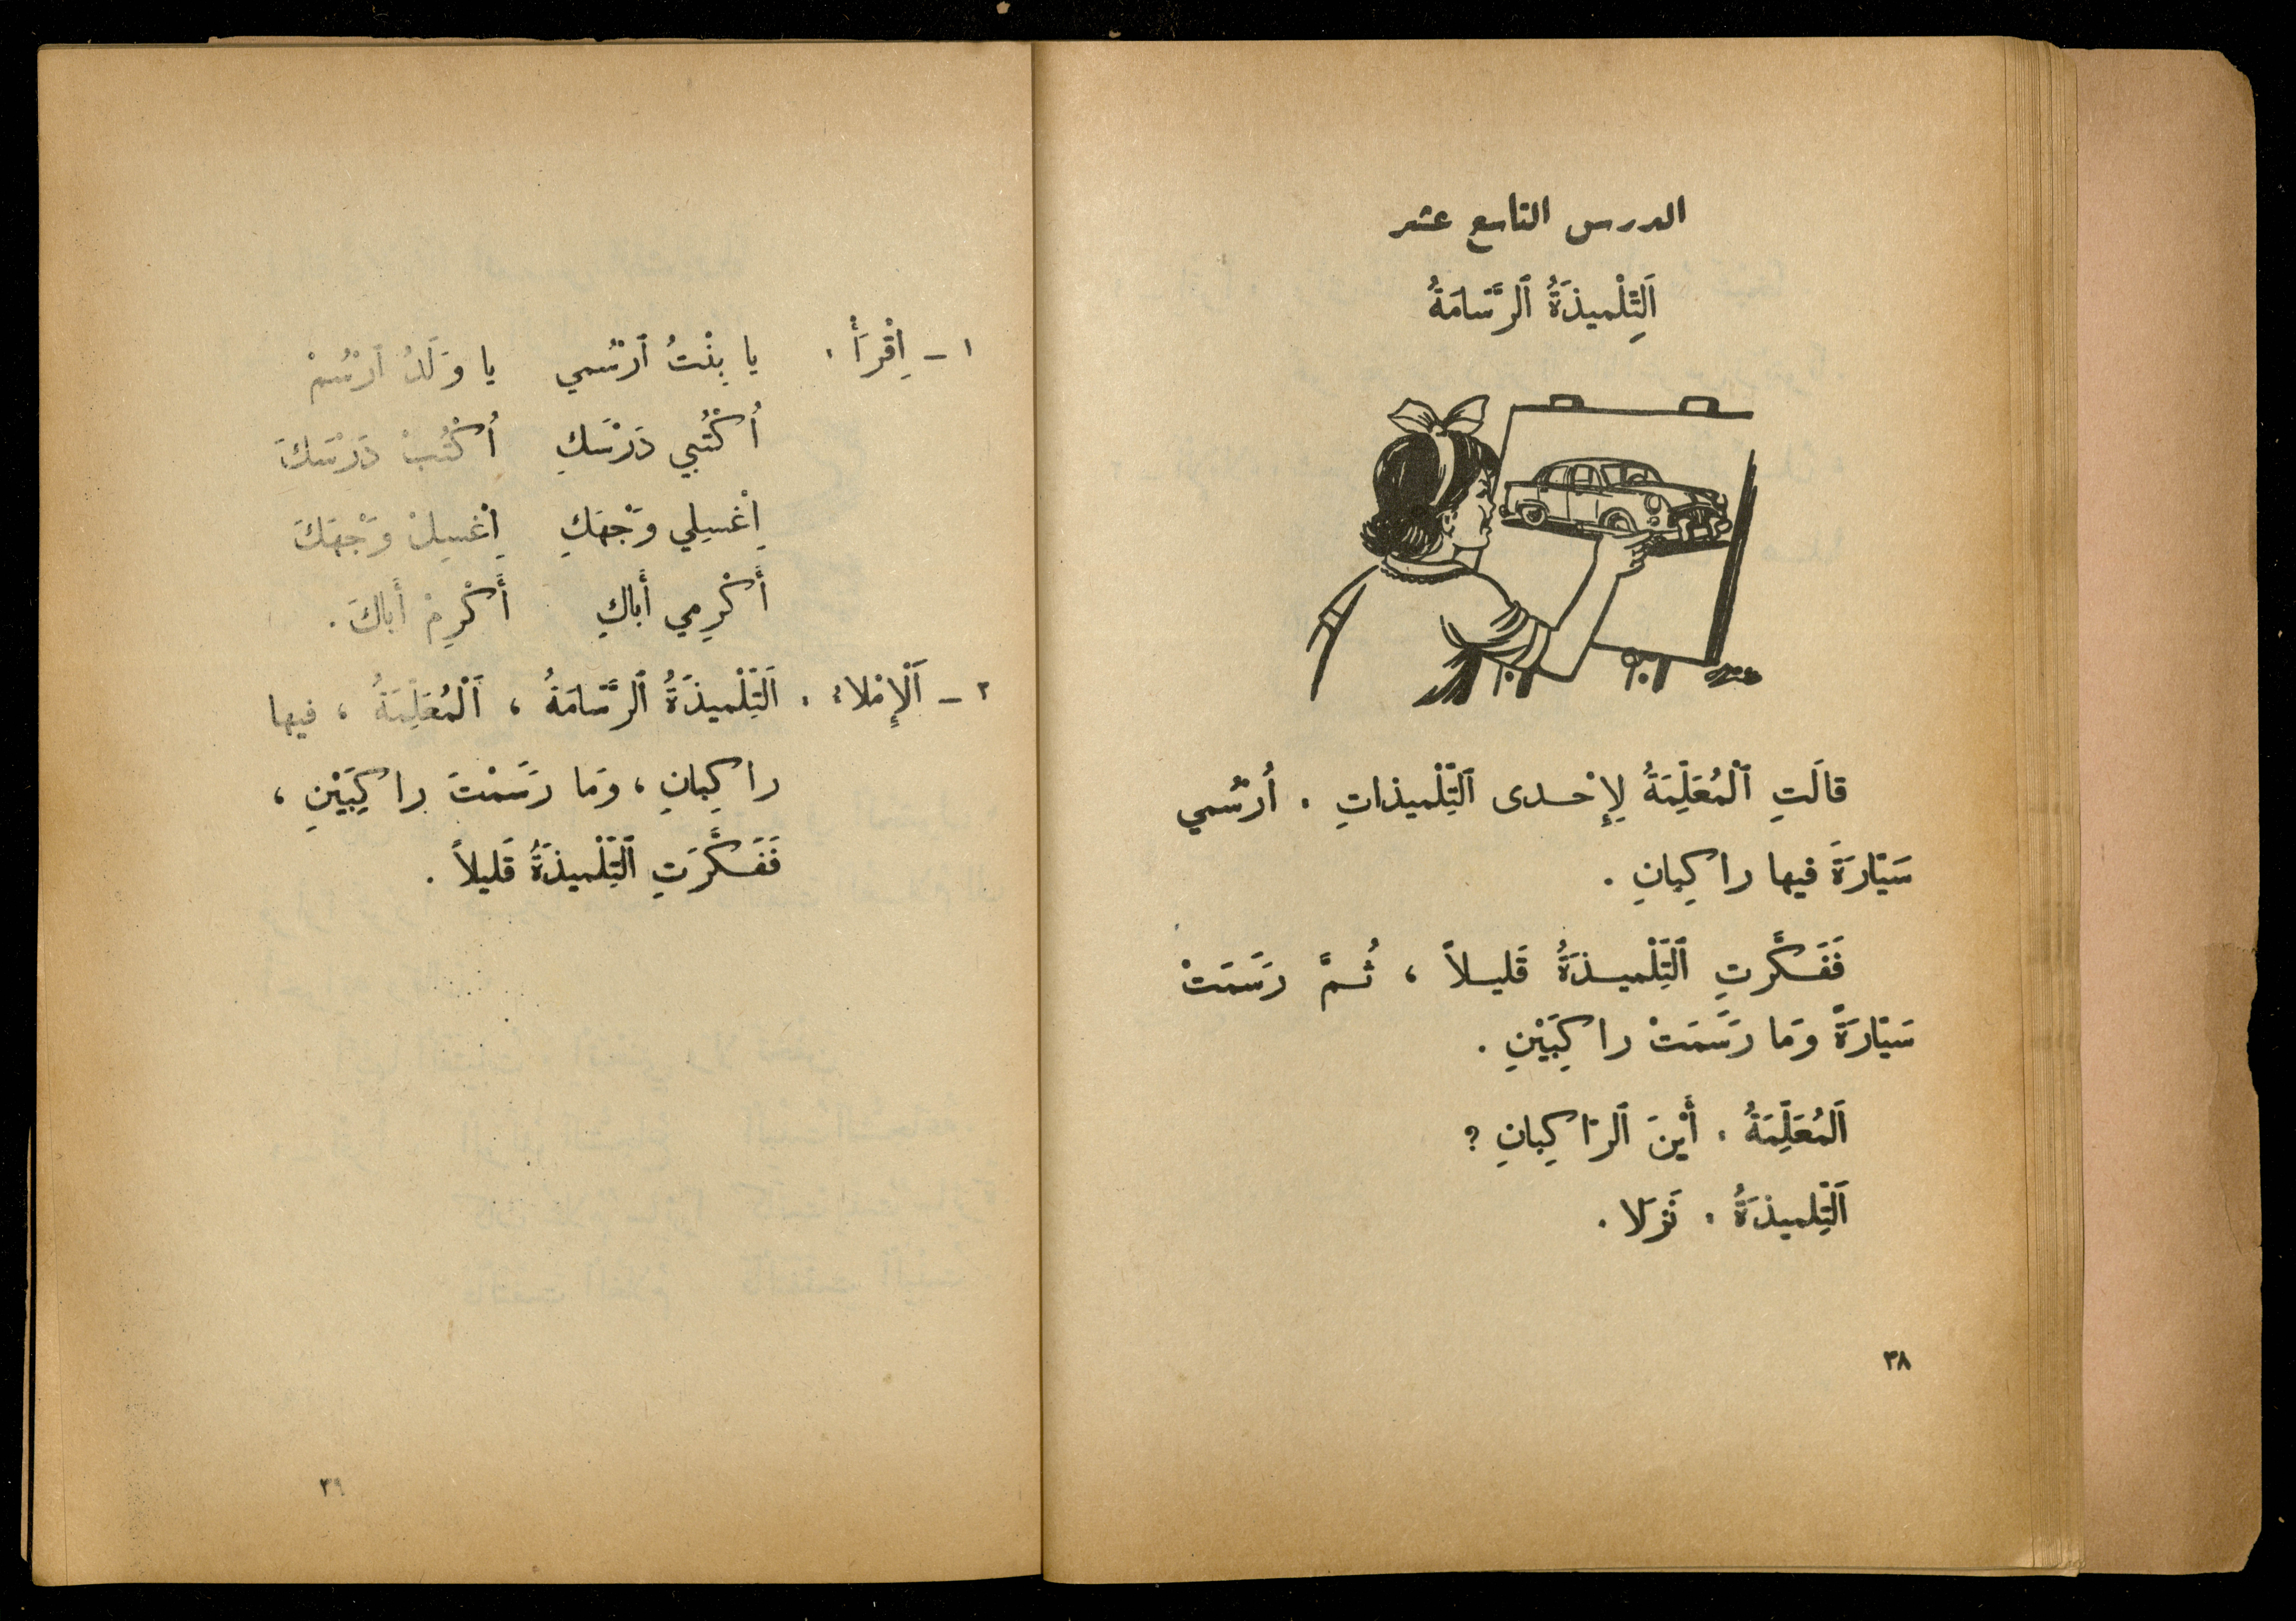 الدرس التاسع عشر
اَلتِّلْميذَةُ ٱلرَّسّامَةُ
قالَتِ ٱلْمُعَلِّمَةُ لِإِحْدى ٱلتِّلْميذاتِ . أُرْسُمي
سَيّارَةً فيها راكِبانِ .
فَفَكَّرتِ ٱلتِّلْميذَةُ قَليلاً ، ثُمَّ رَسَمَتْ
سَيّارَةً وَما رَسَمَتْ راكِبَيْنِ .
اَلمُعَلِّمَةُ . أَيْنَ ٱلرّاكِبانِ ؟
اَلتِّلميذَةُ . نَزَلا .
٣٨
١ - اِقْرَأْ . يا بِنْتُ ٱرْسُمي يا وَلَدُ ٱرْسُمْ
أُكْتُبي دَرْسَكِ أُكْتُبْ دَرْسَكَ
اِغْسِلي وَجْهَكِ اِغْسِلْ وَجْهَكَ
أَكْرِمي أَباكِ أَكْرِمْ أَباكَ .
٢ - اَلْإِمْلاءُ . اَلتِّلْميذَةُ ٱلرَّسّامَةُ ، اَلْمُعَلِّمَةُ ، فيها
راكِبانِ ، وَما رَسَمْتَ راكِبَيْنِ ،
فَفَكَّرَتِ ٱلتِّلْميذَةُ قَليلاً .
٣٩